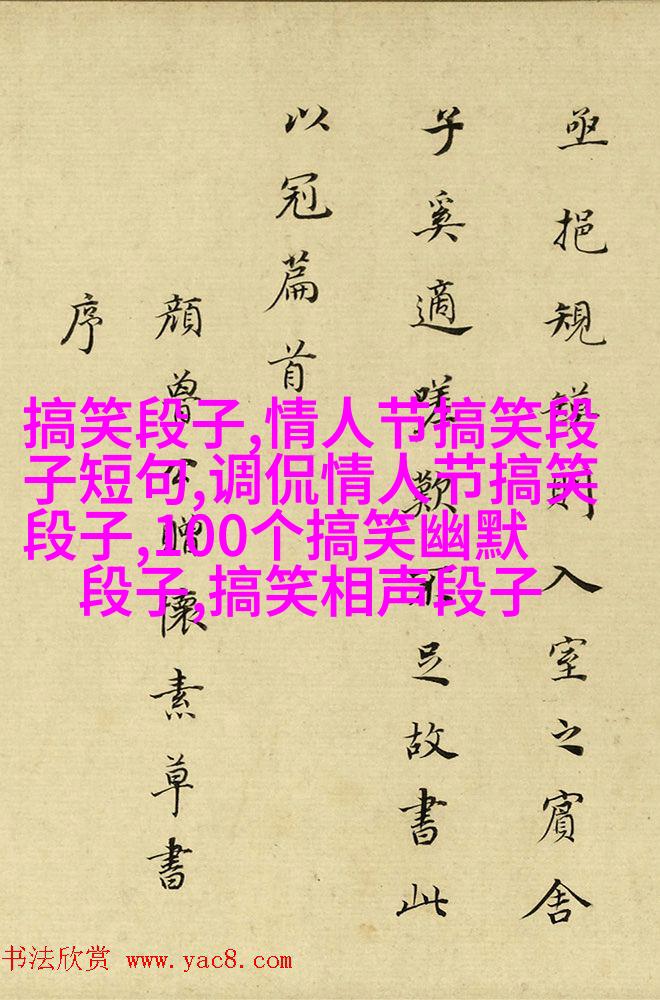 亟挹規模則入室之賓舍
子奚適嗟歎不足故書此
以冠篇首
顏魯公贈懷素草書
序
搞笑段子,情人节搞笑段
子短句,调侃情人节搞笑
段子,100个搞笑幽默
段子,搞笑相声段子
书法欣赏 www.yac8.com